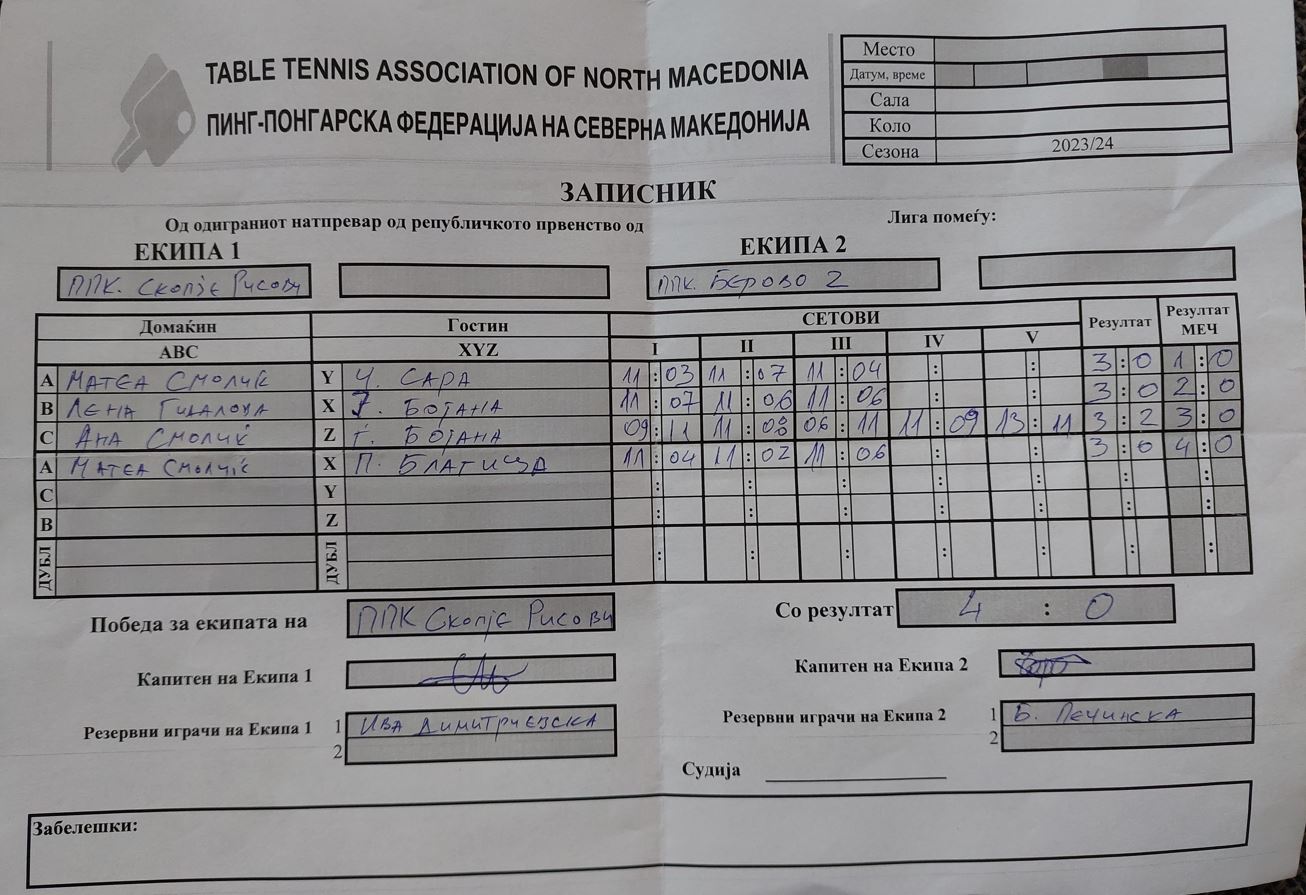 TABLE TENNIS ASSOCIATION OF NORTH MACEDONIA
ПИНГ-ПОНГАРСКА ФЕДЕРАЦИЈА НА СЕВЕРНА МАКЕДОНИЈА
Место
Датум, време
Сала
Коло
Сезона 2023/24
ЗАПИСНИК
Од одиграниот натпревар од републичкото првенство од Лига помеѓу:
ЕКИПА 1 ЕКИПА 2
ППК. Скопје Рисови ППК. Берово 2
Домаќин Гостин СЕТОВИ Резултат Резултат МЕЧ
ABC XYZ I II III IV V
A МАТЕА СМОЛЧИЌ Y Ч. САРА 11 : 03 11 : 07 11 : 04 : : 3 : 0 1 : 0
B ЛЕНА X БОЈАНА 11 : 07 11 : 06 11 : 06 : : 3 : 0 2 : 0
C АНА СМОЛЧИЌ Z Ѓ. БОЈАНА 09 : 11 11 : 08 06 : 11 11 : 09 13 : 11 3 : 2 3 : 0
A МАТЕА СМОЛЧИЌ X П. БЛАГИЦА 11 : 04 11 : 02 11 : 06 : : 3 : 0 4 : 0
C Y : : : : : : :
B Z : : : : : : :
ДУБЛ ДУБЛ : : : : : : :
Победа за екипата на ППК Скопје Рисови Со резултат 4 : 0
Капитен на Екипа 1 Капитен на Екипа 2
Резервни играчи на Екипа 1 1 ИВА ДИМИТРИЕВСКА Резервни играчи на Екипа 2 1 Б. ПЕЧИНСКА
2 2
Судија
Забелешки: